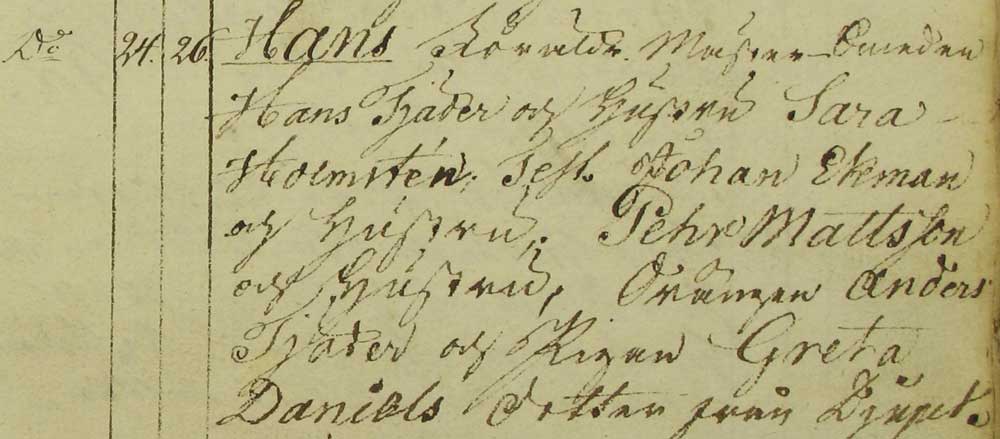 Do 24. 26. Hans Föräldr. Mäster Smeden
Hans Tjäder och Hustru Sara
Holmstén, Test. Johan Ekman
och Hustru, Pehr Mattsson
och Hustru, Drängen Anders
Tjäder och Pigan Greta
Daniels dotter från Djupet.